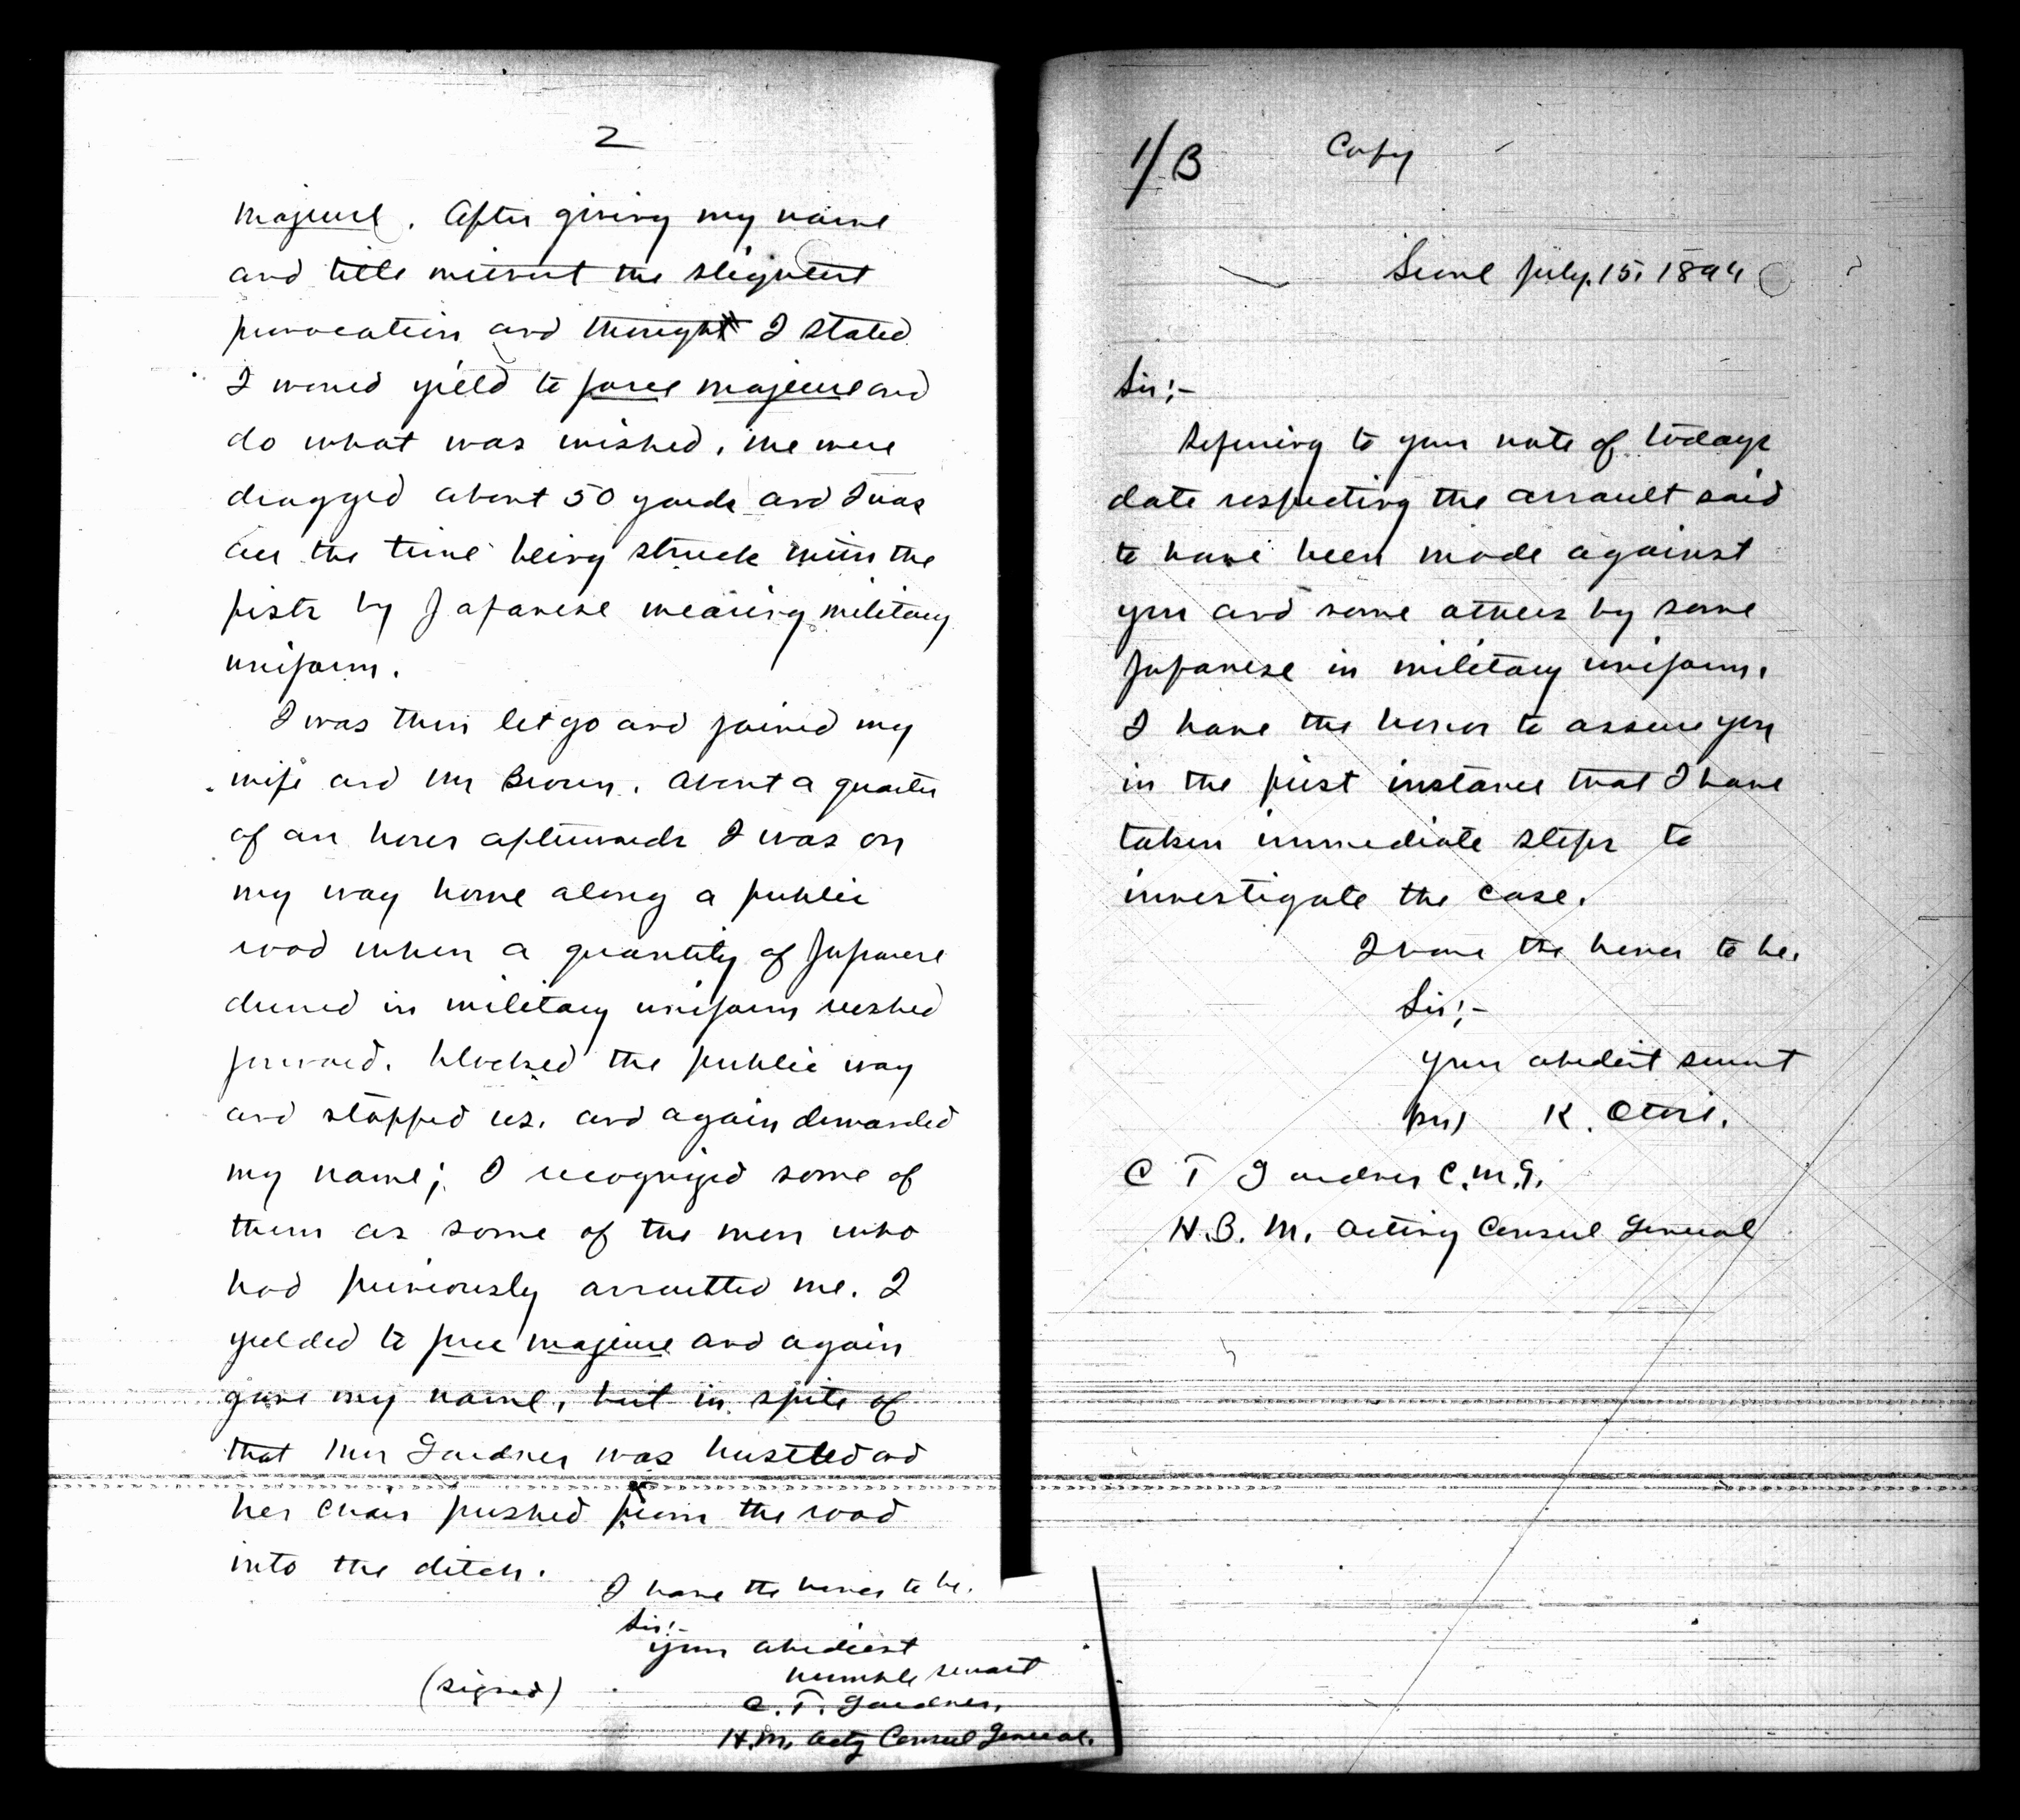 2
majeure. After giving my name
and title without the slightest
provocation and though I stated
I would yield to force majeure and
do what was wished, we were
dragged about 50 yards and I was
all the time being struck with the
fists by Japanese wearing military
uniform.
I was then let go and joined my
wife and Mr Brown. About a quarter
of an hour afterwards I was on
my way home along a public
road when a quantity of Japanese
dressed in military uniform rushed
forward, blocked the public way
and stopped us, and again demanded
my name; I recognized some of
them as some of the men who
had previously assaulted me. I
yielded to force majeure and again
gave my name, but in spite of
that Mrs Gardner was hustled and
her chair pushed from the road
into the ditch.
I have the honor to be.
Sir:-
your obedient
humble servant
(signed)
C. T. Gardner,
H.M. Actg Consul General.
1/B Copy
Seoul July. 15, 1894
Sir:-
Referring to your note of todays
date respecting the assault said
to have been made against
you and some others by some
Japanese in military uniform,
I have the honor to assure you
in the first instance that I have
taken immediate steps to
investigate the case.
I have the honor to be,
Sir:-
your obedient servant
K. Otori.
C T Gardner C.M.G.
H.B.M. Acting Consul General